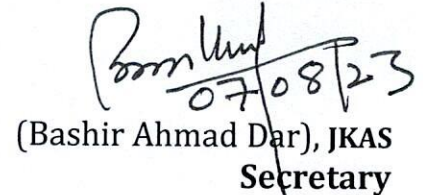 07/08/23
(Bashir Ahmad Dar), JKAS
Secretary